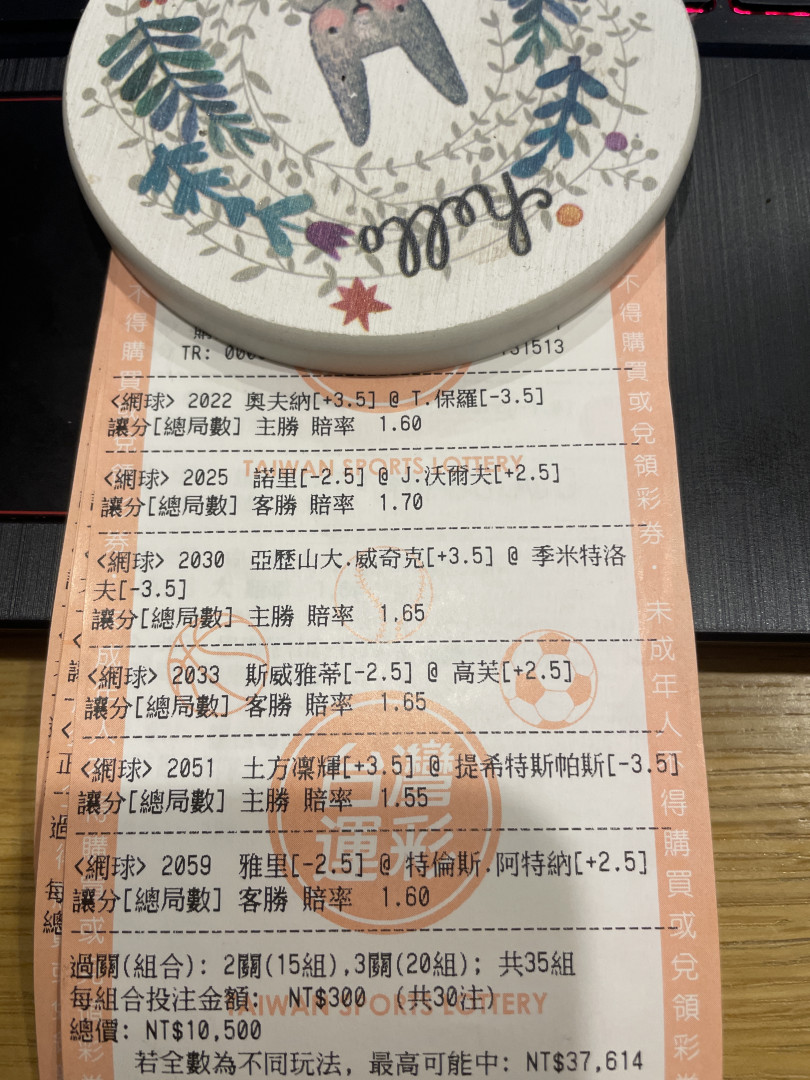 hello
TR: 000
31513
<網球> 2022 奧夫納[+3.5] @ T.保羅[-3.5]
讓分[總局數] 主勝 賠率 1.60
TAIWAN SPORTS LOTTERY
<網球> 2025 諾里[-2.5] @ J.沃爾夫[+2.5]
讓分[總局數] 客勝 賠率 1.70
<網球> 2030 亞歷山大.威奇克[+3.5] @ 季米特洛
夫[-3.5]
讓分[總局數] 主勝 賠率 1.65
<網球> 2033 斯威雅蒂[-2.5] @ 高芙[+2.5]
讓分[總局數] 客勝 賠率 1.65
<網球> 2051 土方凜輝[+3.5] @ 提希特斯帕斯[-3.5]
讓分[總局數] 主勝 賠率 1.55
台灣
運彩
<網球> 2059 雅里[-2.5] @ 特倫斯.阿特納[+2.5]
讓分[總局數] 客勝 賠率 1.60
過關(組合): 2關(15組),3關(20組); 共35組
每組合投注金額: NT$300 (共30注)
TAIWAN SPORTS LOTTERY
總價: NT$10,500
若全數為不同玩法, 最高可能中: NT$37,614
不得購買或兌領彩券．未成年人不得購買或兌領彩